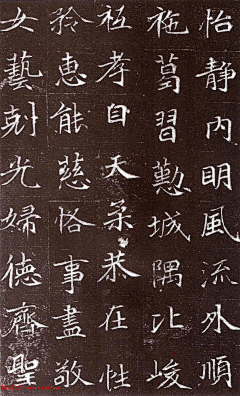 怡静内明風流外順
袘葛習懃城隅比峻
祗孝自天柔恭在性
矜惠能慈恪事盡敬
女藝剋光婦德齊聖